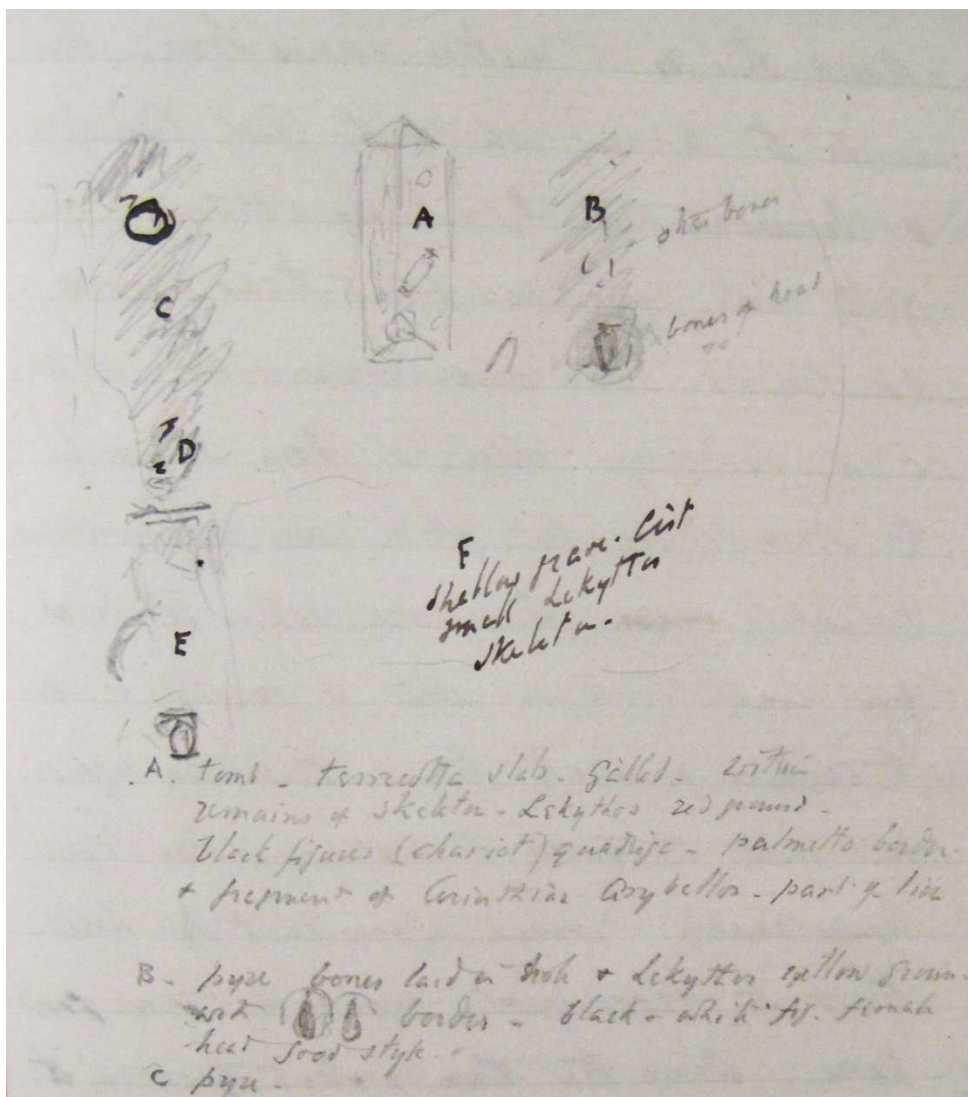 A
B
other bones
C
bones of head
D
F
shallow grave. Cist
small Lekythos
skeleton.
E
A. tomb - terracotta slab. gabled.
remains of skeleton - Lekythos red ground -
black figures (chariot) quadriga - palmetto border
+ fragment of Corinthian Arybellos - part of
B - pyre bones laid in + Lekythos yellow groun-
with border - black + white fig. female
head good style.
C pyre.